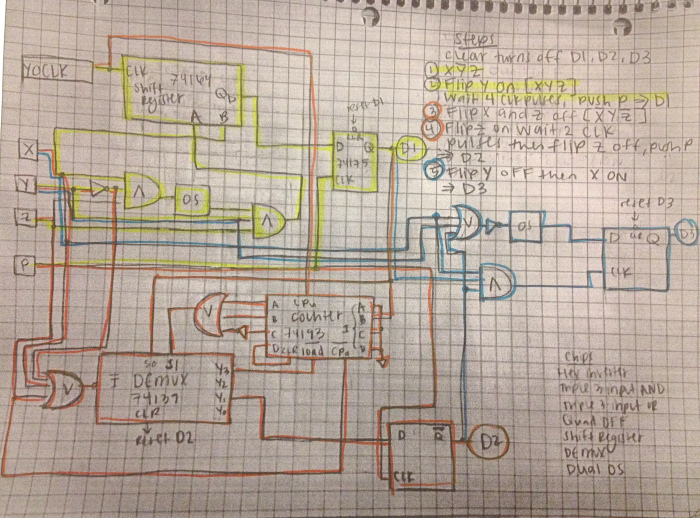 Steps
clear turns off D1, D2, D3
① XYZ
② Flip Y ON [XYZ]
Wait 4 CLK pulses, push P ⇒ D1
③ Flip X and Z off [XYZ]
④ Flip Z on Wait 2 CLK
pulses then flip Z off, push P
⇒ D2
⑤ Flip Y OFF then X ON
⇒ D3
YOCLK
CLK
74164
Shift
register
QD
A
B
reset D1
D
CLR
Q
74175
CLK
D1
X
Y
Z
P
Λ
OS
Λ
V
OS
Λ
reset D3
D
CLR
Q
CLK
D3
V
CPU
A
B
C
D
Counter
74193
CLR
load
CPD
A
B
C
D
V
I
S0
S1
DEMUX
74139
CLR
Y3
Y2
Y1
Y0
reset D2
D
Q
CLK
D2
Chips
Hex inverter
Triple 3 input AND
Triple 3 input OR
Quad DFF
Shift Register
DEMUX
Dual OS